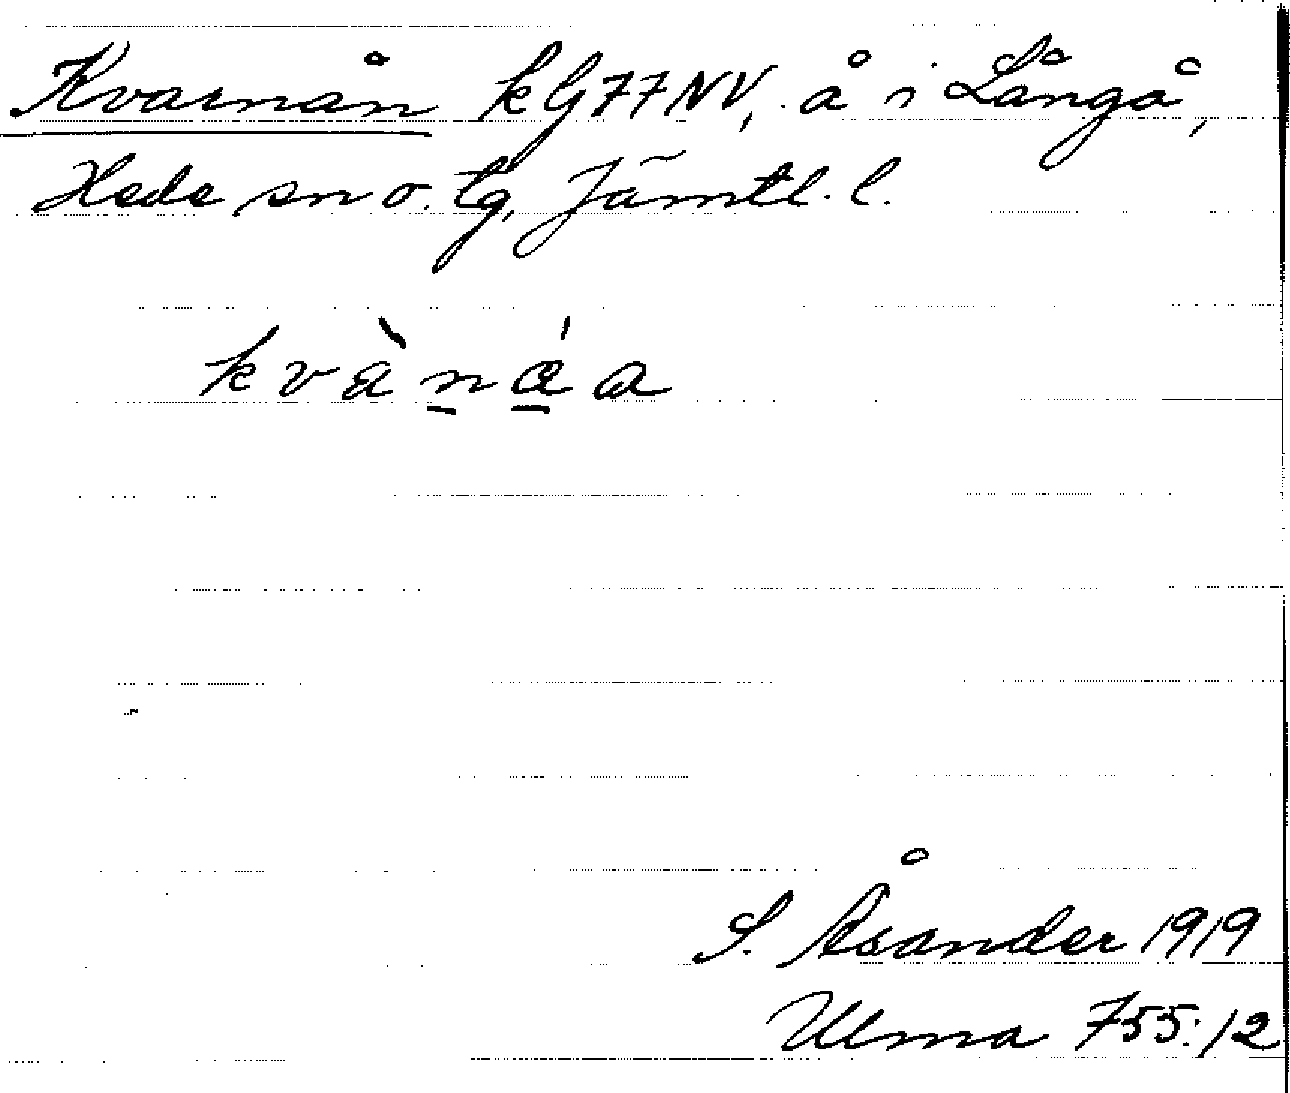 Kvarnån kG77NV, å i Långå,
Hede sn o. tg, Jämtl. l.
kvànáa
S. Åsander 1919
Ulma 755:12